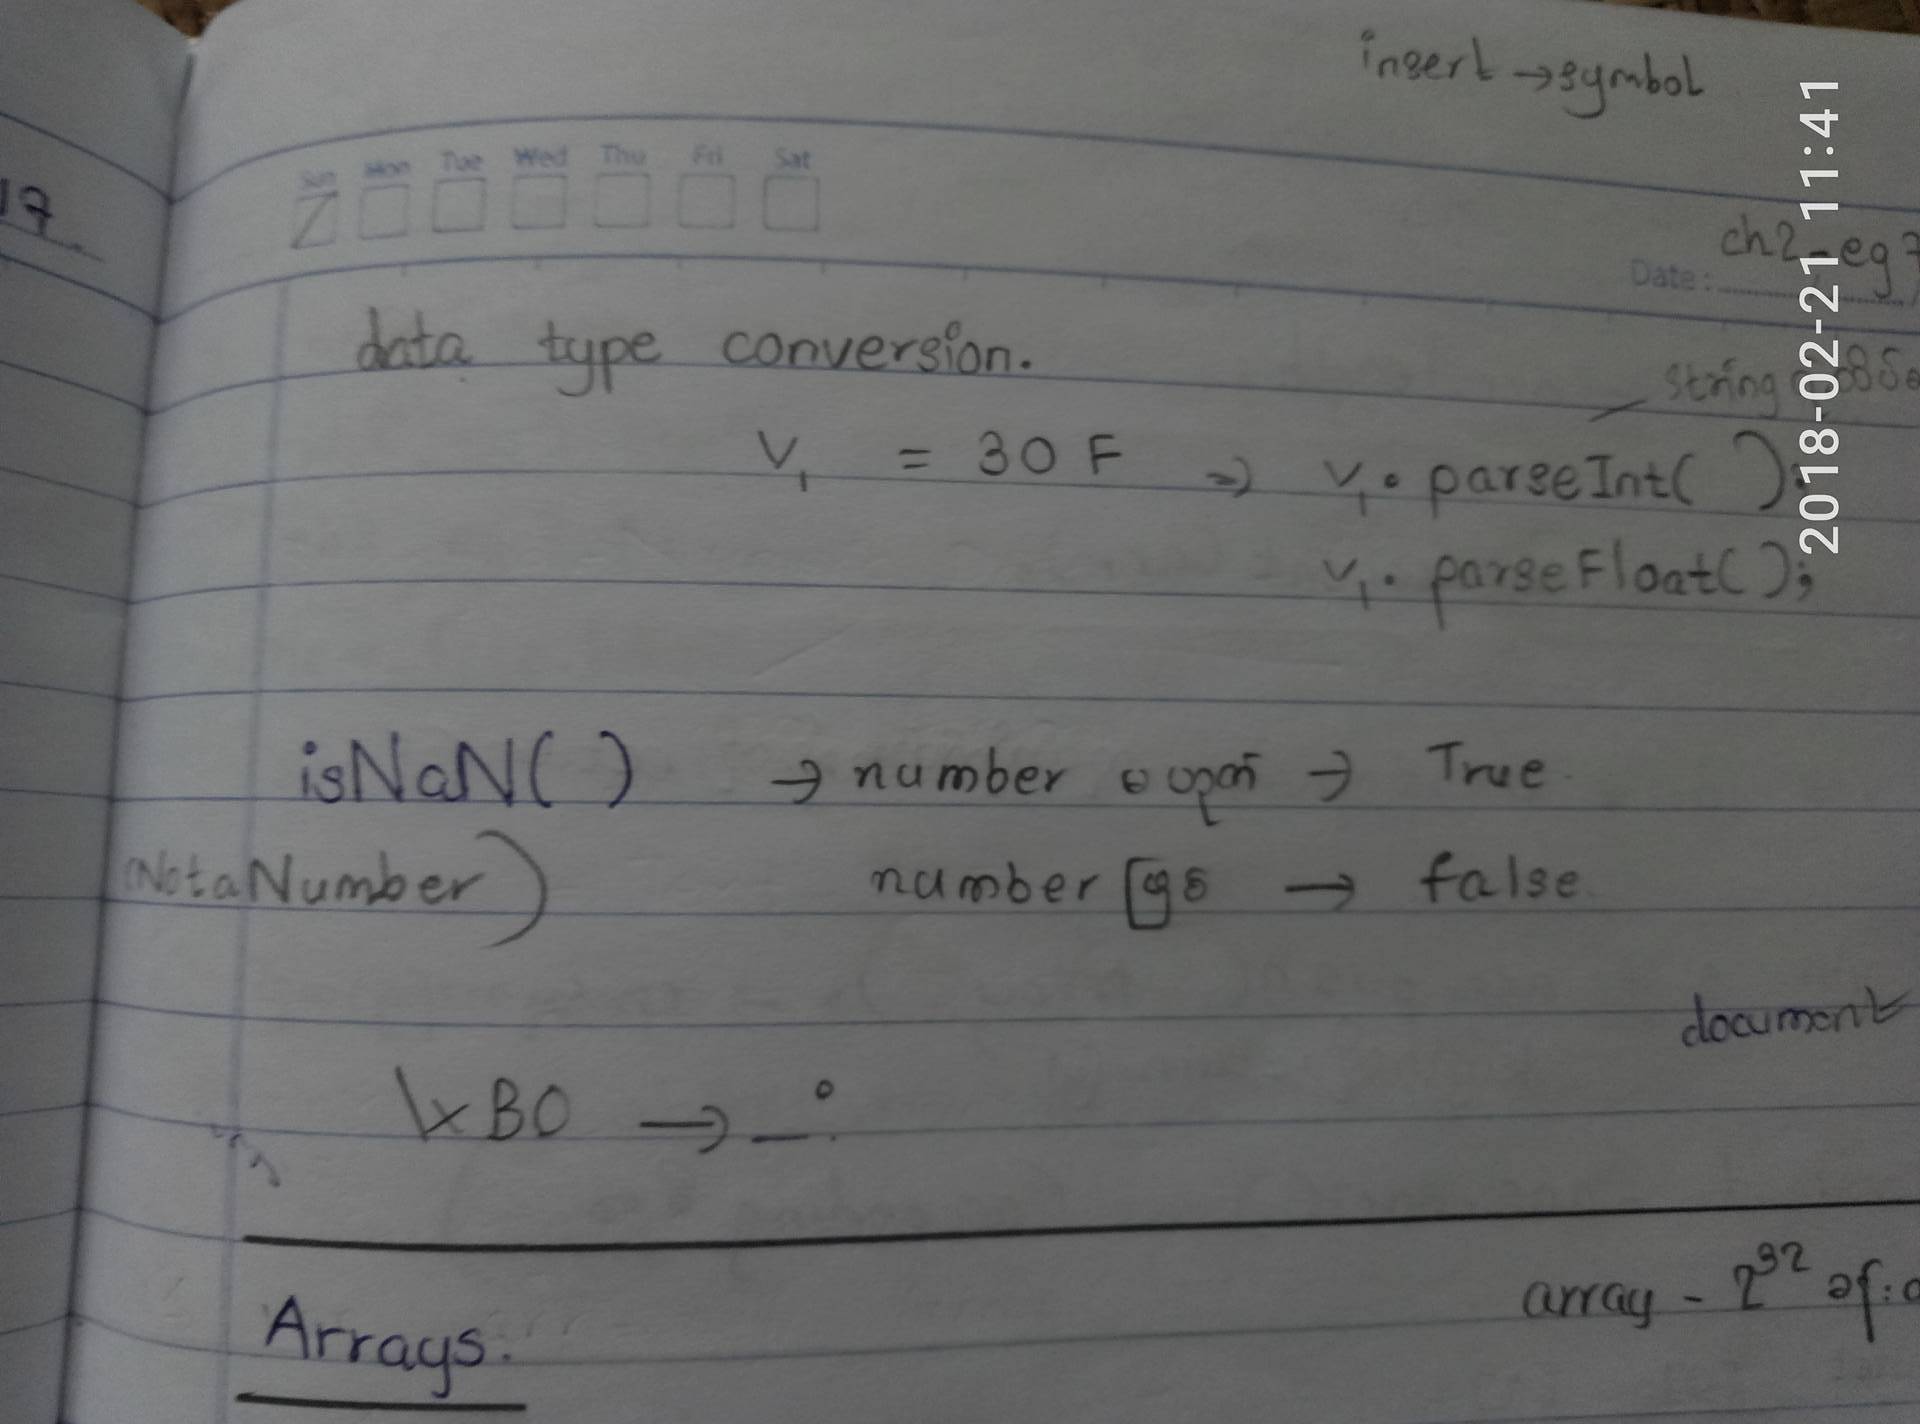 insert → symbol
17
Sun Mon Tue Wed Thu Fri Sat
ch2-eg7
Date:
data type conversion.
String
V1 = 30 F ⇒ V1. parseInt( );
V1. parseFloat( );
isNaN( ) → number → True.
(NotaNumber) number → false
document
\xBO → °
Arrays.
array - 2^32
2018-02-21 11:41